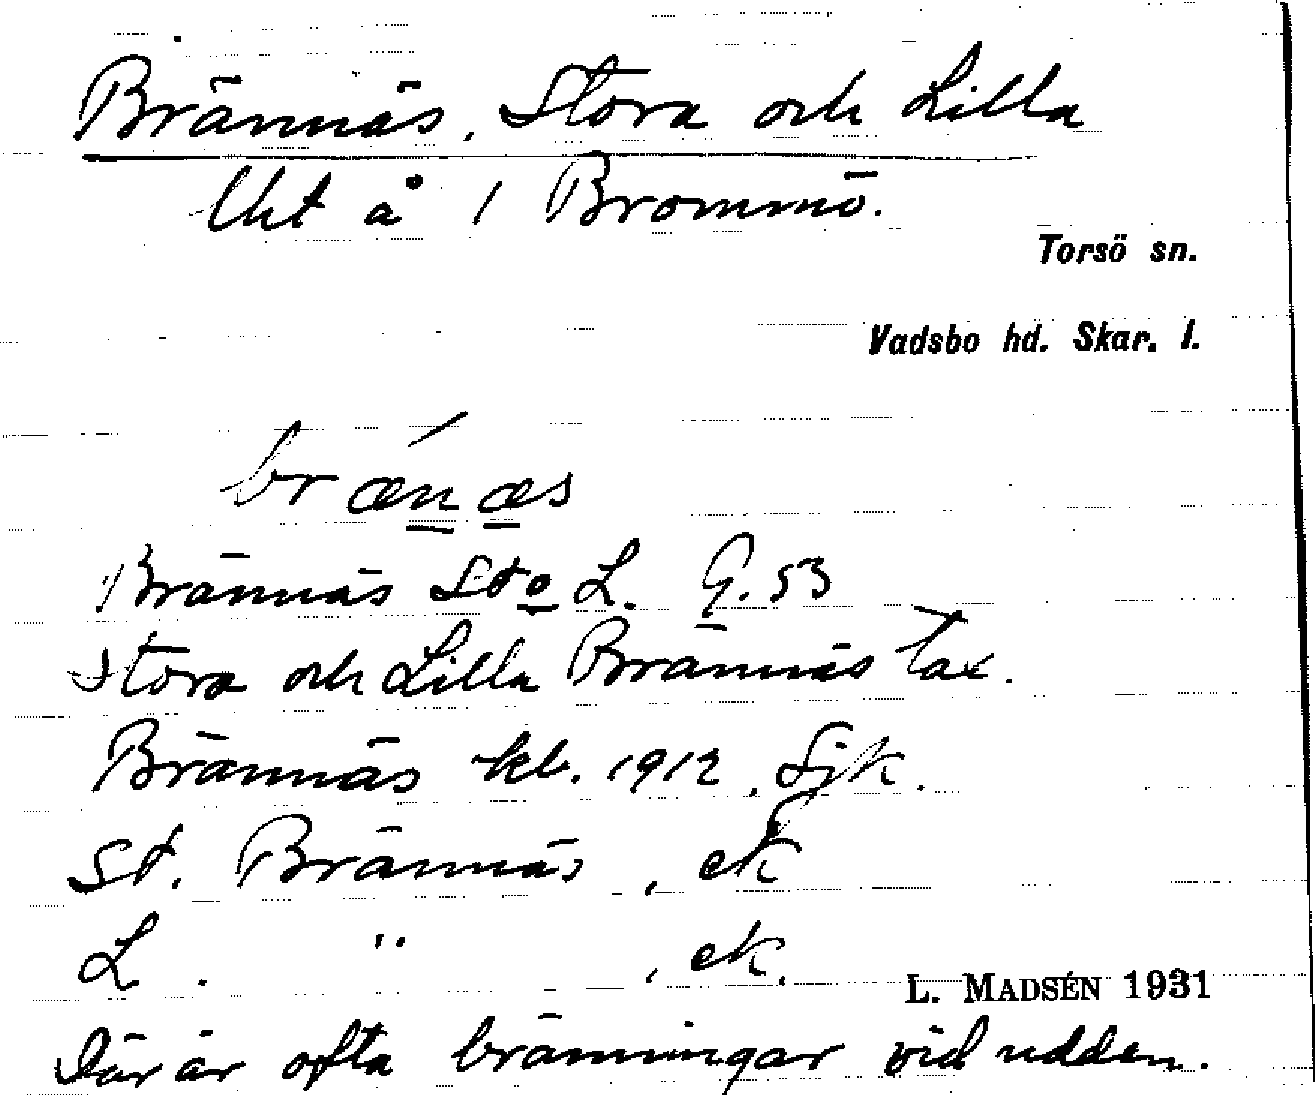 Brännäs, Stora och Lilla
Uht å 1 Brommö.
Torsö sn.
Vadsbo hd. Skar. l.
brænæs
Brännäs St o L. G. 53
Stora och Lilla Brännäs Tax.
Brännäs kb. 1912, Sjk.
St. Brännäs, ek
L. " , ek.
L. MADSÉN 1931
Där är ofta bränningar vid udden.